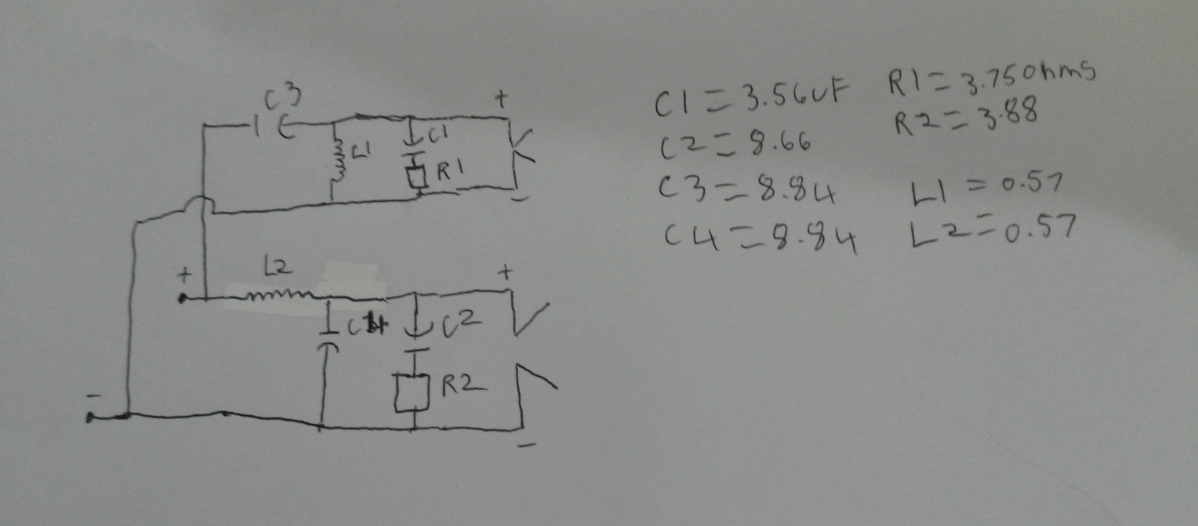 C3
+
C1
L1
R1
-
+
L2
+
C4
C2
R2
-
-
C1 = 3.56uF
R1 = 3.75ohms
C2 = 8.66
R2 = 3.88
C3 = 8.84
L1 = 0.57
C4 = 8.84
L2 = 0.57